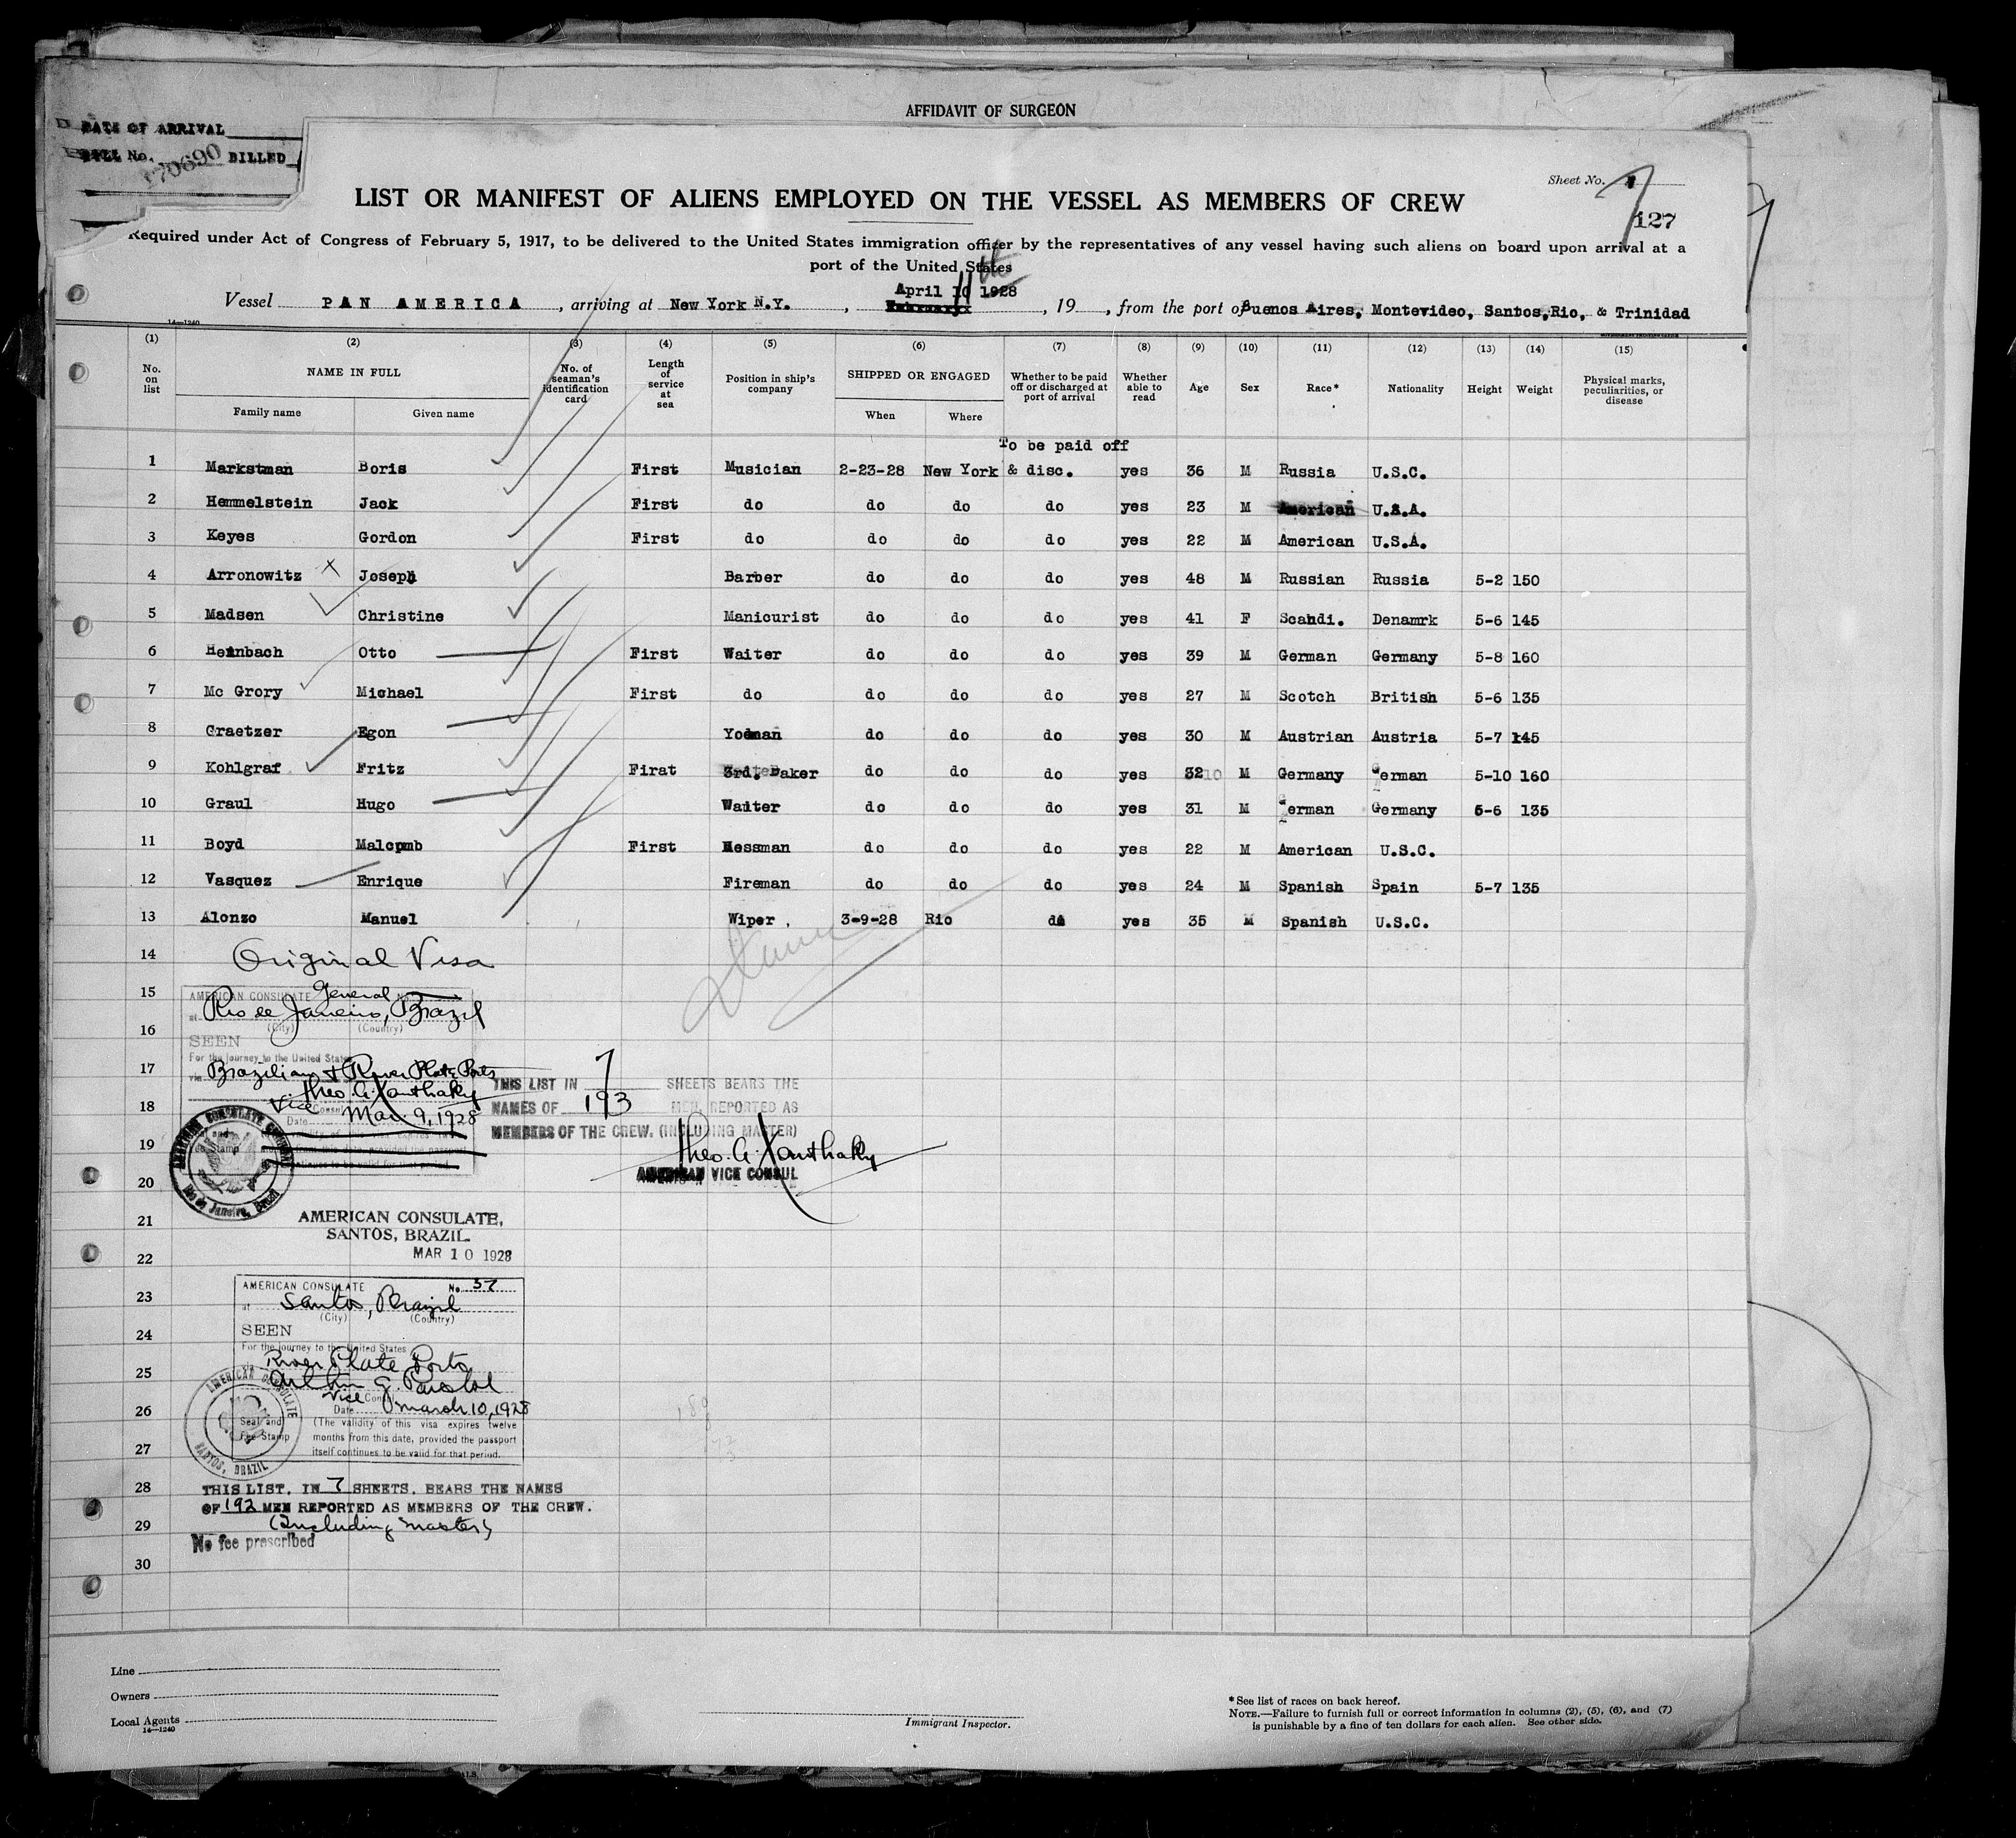 AFFIDAVIT OF SURGEON
DATE OF ARRIVAL
BILL No. 170690 BILLED
Sheet No. 7
127
LIST OR MANIFEST OF ALIENS EMPLOYED ON THE VESSEL AS MEMBERS OF CREW
Required under Act of Congress of February 5, 1917, to be delivered to the United States immigration officer by the representatives of any vessel having such aliens on board upon arrival at a
port of the United States
April 10 11th 1928
Vessel PAN AMERICA, arriving at New York N.Y., 19, from the port of Buenos Aires, Montevideo, Santos, Rio, & Trinidad
14—1240
(1) (2) (3) (4) (5) (6) (7) (8) (9) (10) (11) (12) (13) (14) (15)
No. on list NAME IN FULL No. of seaman's identification card Length of service at sea Position in ship's company SHIPPED OR ENGAGED Whether to be paid off or discharged at port of arrival Whether able to read Age Sex Race* Nationality Height Weight Physical marks, peculiarities, or disease
Family name Given name When Where
To be paid off
1 Markstman Boris First Musician 2-23-28 New York & disc. yes 36 M Russia U.S.C.
2 Hemmelstein Jack First do do do do yes 23 M American U.S.A.
3 Keyes Gordon First do do do do yes 22 M American U.S.A.
4 Arronowitz x Joseph Barber do do do yes 48 M Russian Russia 5-2 150
5 Madsen Christine Manicurist do do do yes 41 F Scandi. Denamrk 5-6 145
6 Heinbach Otto First Waiter do do do yes 39 M German Germany 5-8 160
7 Mc Grory Michael First do do do do yes 27 M Scotch British 5-6 135
8 Graetzer Egon Yoeman do do do yes 30 M Austrian Austria 5-7 145
9 Kohlgraf Fritz Firat 3rd. Baker do do do yes 32 M Germany German 5-10 160
10 Graul Hugo Waiter do do do yes 31 M German Germany 5-6 135
11 Boyd Malcomb First Messman do do do yes 22 M American U.S.C.
12 Vasquez Enrique Fireman do do do yes 24 M Spanish Spain 5-7 135
13 Alonzo Manuel Wiper. 3-9-28 Rio do yes 35 M Spanish U.S.C.
14 Original Visa
15 AMERICAN CONSULATE General
at Rio de Janeiro, Brazil
(City) (Country)
16
SEEN
For the journey to the United States
17 via Brazilian & River Plate Ports
Theo. A. Xanthaky
Vice Consul
18 Date Mar 9, 1928
THIS LIST IN 7 SHEETS BEARS THE
NAMES OF 193 MEN, REPORTED AS
MEMBERS OF THE CREW. (INCLUDING MASTER)
Theo. A. Xanthaky
AMERICAN VICE CONSUL
19
AMERICAN CONSULATE GENERAL
Rio de Janeiro, Brazil
20
21 AMERICAN CONSULATE,
SANTOS, BRAZIL.
22 MAR 10 1928
AMERICAN CONSULATE No. 37
23 at Santos, Brazil
(City) (Country)
24 SEEN
For the journey to the United States
River Plate Ports
25
Vice Consul
26 Date March 10, 1928
AMERICAN CONSULATE
SANTOS, BRAZIL
Seal and
Fee Stamp
(The validity of this visa expires twelve
months from this date, provided the passport
27 itself continues to be valid for that period.
28 THIS LIST, IN 7 SHEETS, BEARS THE NAMES
OF 192 MEN REPORTED AS MEMBERS OF THE CREW.
29 (Including master)
No fee prescribed
30
Line
Owners
Local Agents
14—1240
Immigrant Inspector.
* See list of races on back hereof.
NOTE.—Failure to furnish full or correct information in columns (2), (5), (6), and (7)
is punishable by a fine of ten dollars for each alien. See other side.